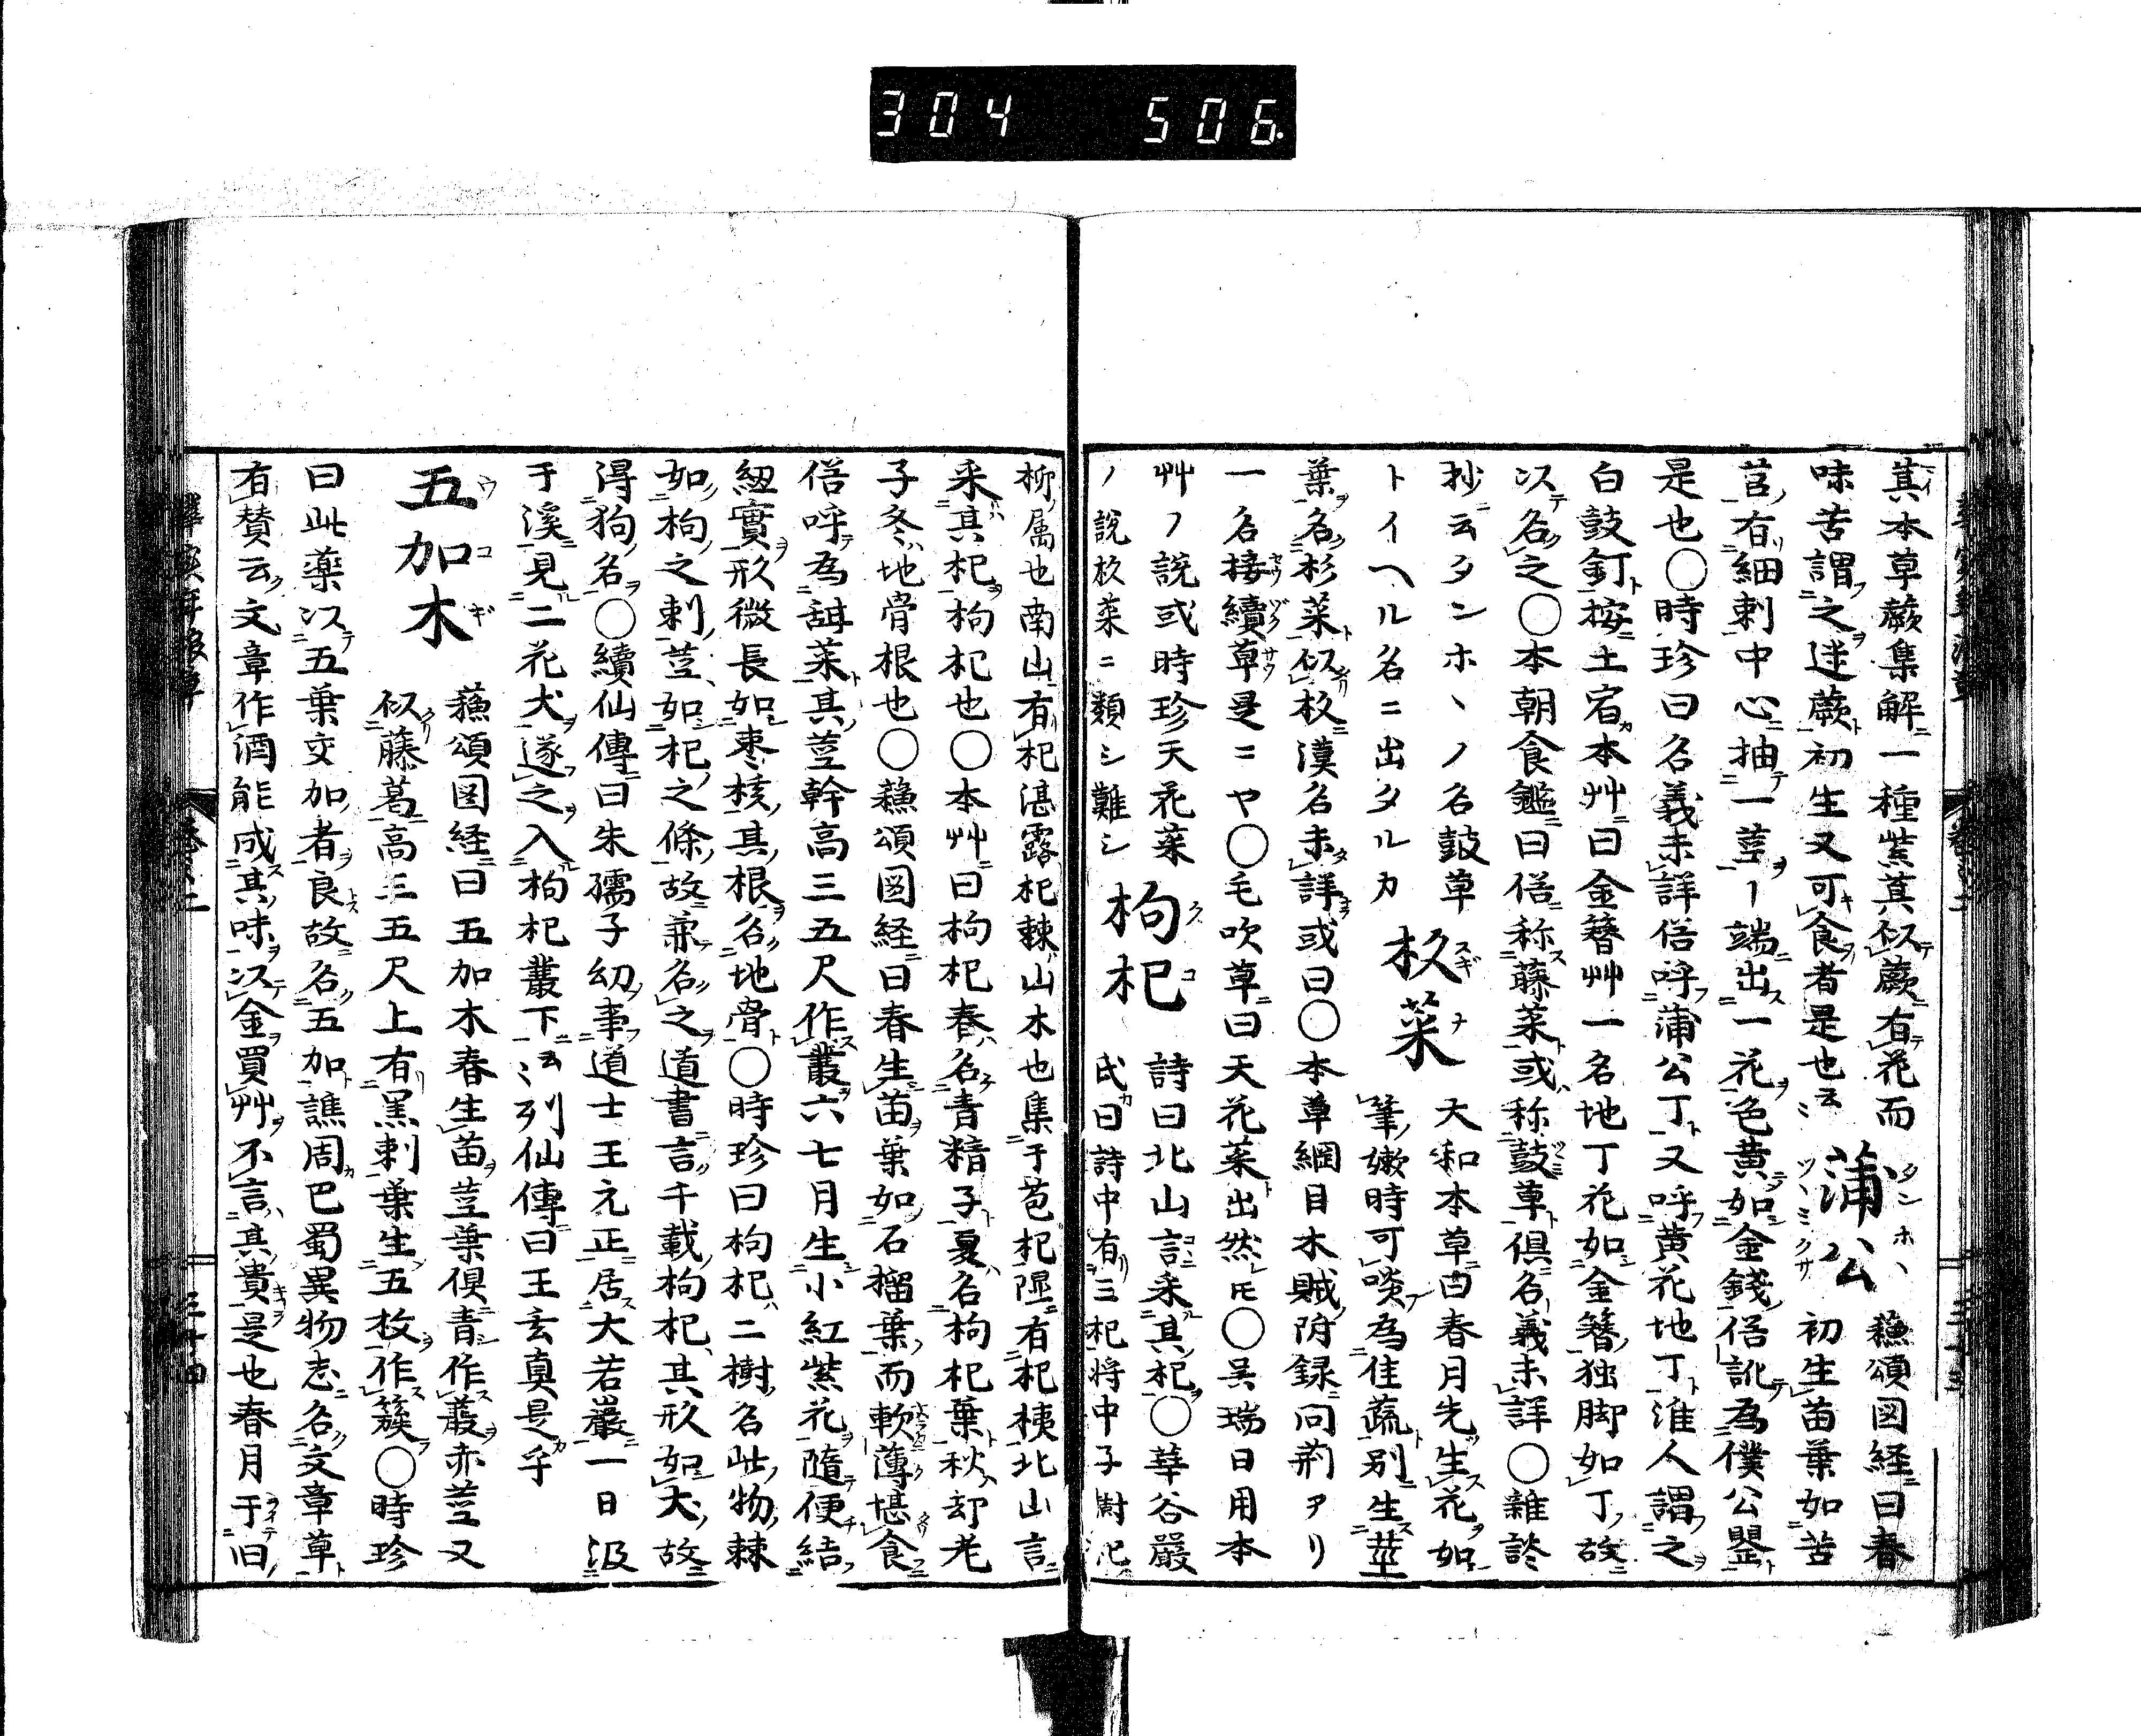 304 506
萁本草蕨集解一種紫萁似蕨有花而
味苦謂之迷蕨初生又可食者是也云〻
蒲公
タンホヽ
ツヽミクサ
蘓頌図経曰春
初生苗葉如苦
苣有細刺中心抽一莖一端出一花色黄如金錢俗訛為僕公罌
是也〇時珍曰名義未詳俗呼蒲公丁又呼黄花地丁淮人謂之
白鼓釘按土宿本艸曰金簪艸一名地丁花如金簪独脚如丁故
以名之〇本朝食鑑曰俗称藤菜或称鼓草倶名義未詳〇雜談
抄云タンホヽノ名鼓草
トイヘル名ニ出タルカ
杉菜
スギナ
大和本草曰春月先生花如
筆嫩時可啖為佳蔬別生莖
葉名杉菜似杉漢名未詳或曰〇本草綱目木賊附録問荊アリ
一名接續草是ニヤ〇毛吹草曰天花菜出然𪜈〇呉瑞日用本
艸ノ説或時珍天花菜
ノ説杉菜ニ類シ難シ
枸杞
クコ
詩曰北山言采其杞〇華谷嚴
氏曰詩中有三杞将中子樹杞
柳属也南山有杞湛露杞棘山木也集于苞杞隰有杞桋北山言
采其杞枸杞也〇本艸曰枸杞春名青精子夏名枸杞葉秋却老
子冬地骨根也〇蘓頌図経曰春生苗葉如石榴葉而軟薄堪食
俗呼為甜菜其莖幹高三五尺作叢六七月生小紅紫花隨便結
紐實形微長如棗核其根名地骨〇時珍曰枸杞二樹名此物棘
如枸之刺莖如杞之條故兼名之道書言千載枸杞其形如犬故
得狗名〇續仙傳曰朱孺子幼事道士王元正居大若巖一日汲
于溪見二花犬逐之入枸杞叢下云〻列仙傳曰王玄真是乎
五加木
ウコギ
蘓頌図経曰五加木春生苗莖葉倶青作叢赤莖又
似藤葛高三五尺上有黒刺葉生五枚作簇〇時珍
曰此藥以五葉交加者良故名五加譙周巴蜀異物志名文章草
有賛云文章作酒能成其味以金買艸不言其貴是也春月于旧
巻二
三十四